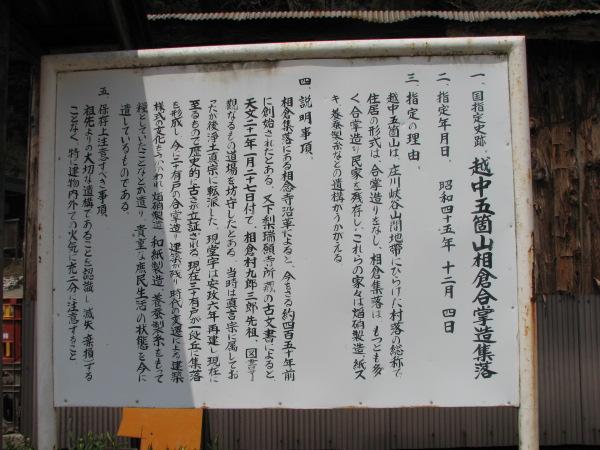 一、国指定史跡、越中五箇山相倉合掌造集落
二、指定年月日、昭和四十五年 十二月 四日
三、指定の理由、
越中五箇山は、庄川峡谷山間地帯にひらけた村落の総称で
住居の形式は、合掌造りをなし、相倉集落は、もっとも多
く合掌造り民家を残存し、これらの家々は焔硝製造、紙ス
キ、養蚕製糸などの遺構がうかがえる
四、説明事項、
相倉集落にある相念寺沿革によると、今をさる約四百五十年前
に創始されたとある、又下梨瑞願寺所蔵の古文書によると
天文二十一年一月二十七日付で、相倉村九郎三郎先祖、図書了
観なるもの道場を坊守したとある、当時は真言宗に属してお
ったが後浄土真宗に転派した、現堂宇は安政六年再建し現在に
至るもので歴史的に古さが立証される、現在三十有戸が一段丘に集落
を形成し、今に二十有戸の合掌造り建築が残り時代の変遷による建築
様式の文化もうかがわれ焔硝製造、和紙製造、養蚕製糸をもって
糧としていたことなどが遺り、貴重な庶民生活の状態を今に
遺しているものである。
五、保存上注意すべき事項、
祖先よりの大切な遺構であることを認識し、滅失、棄損する
ことなく、特に建物内外での火気に充二分に注意すること